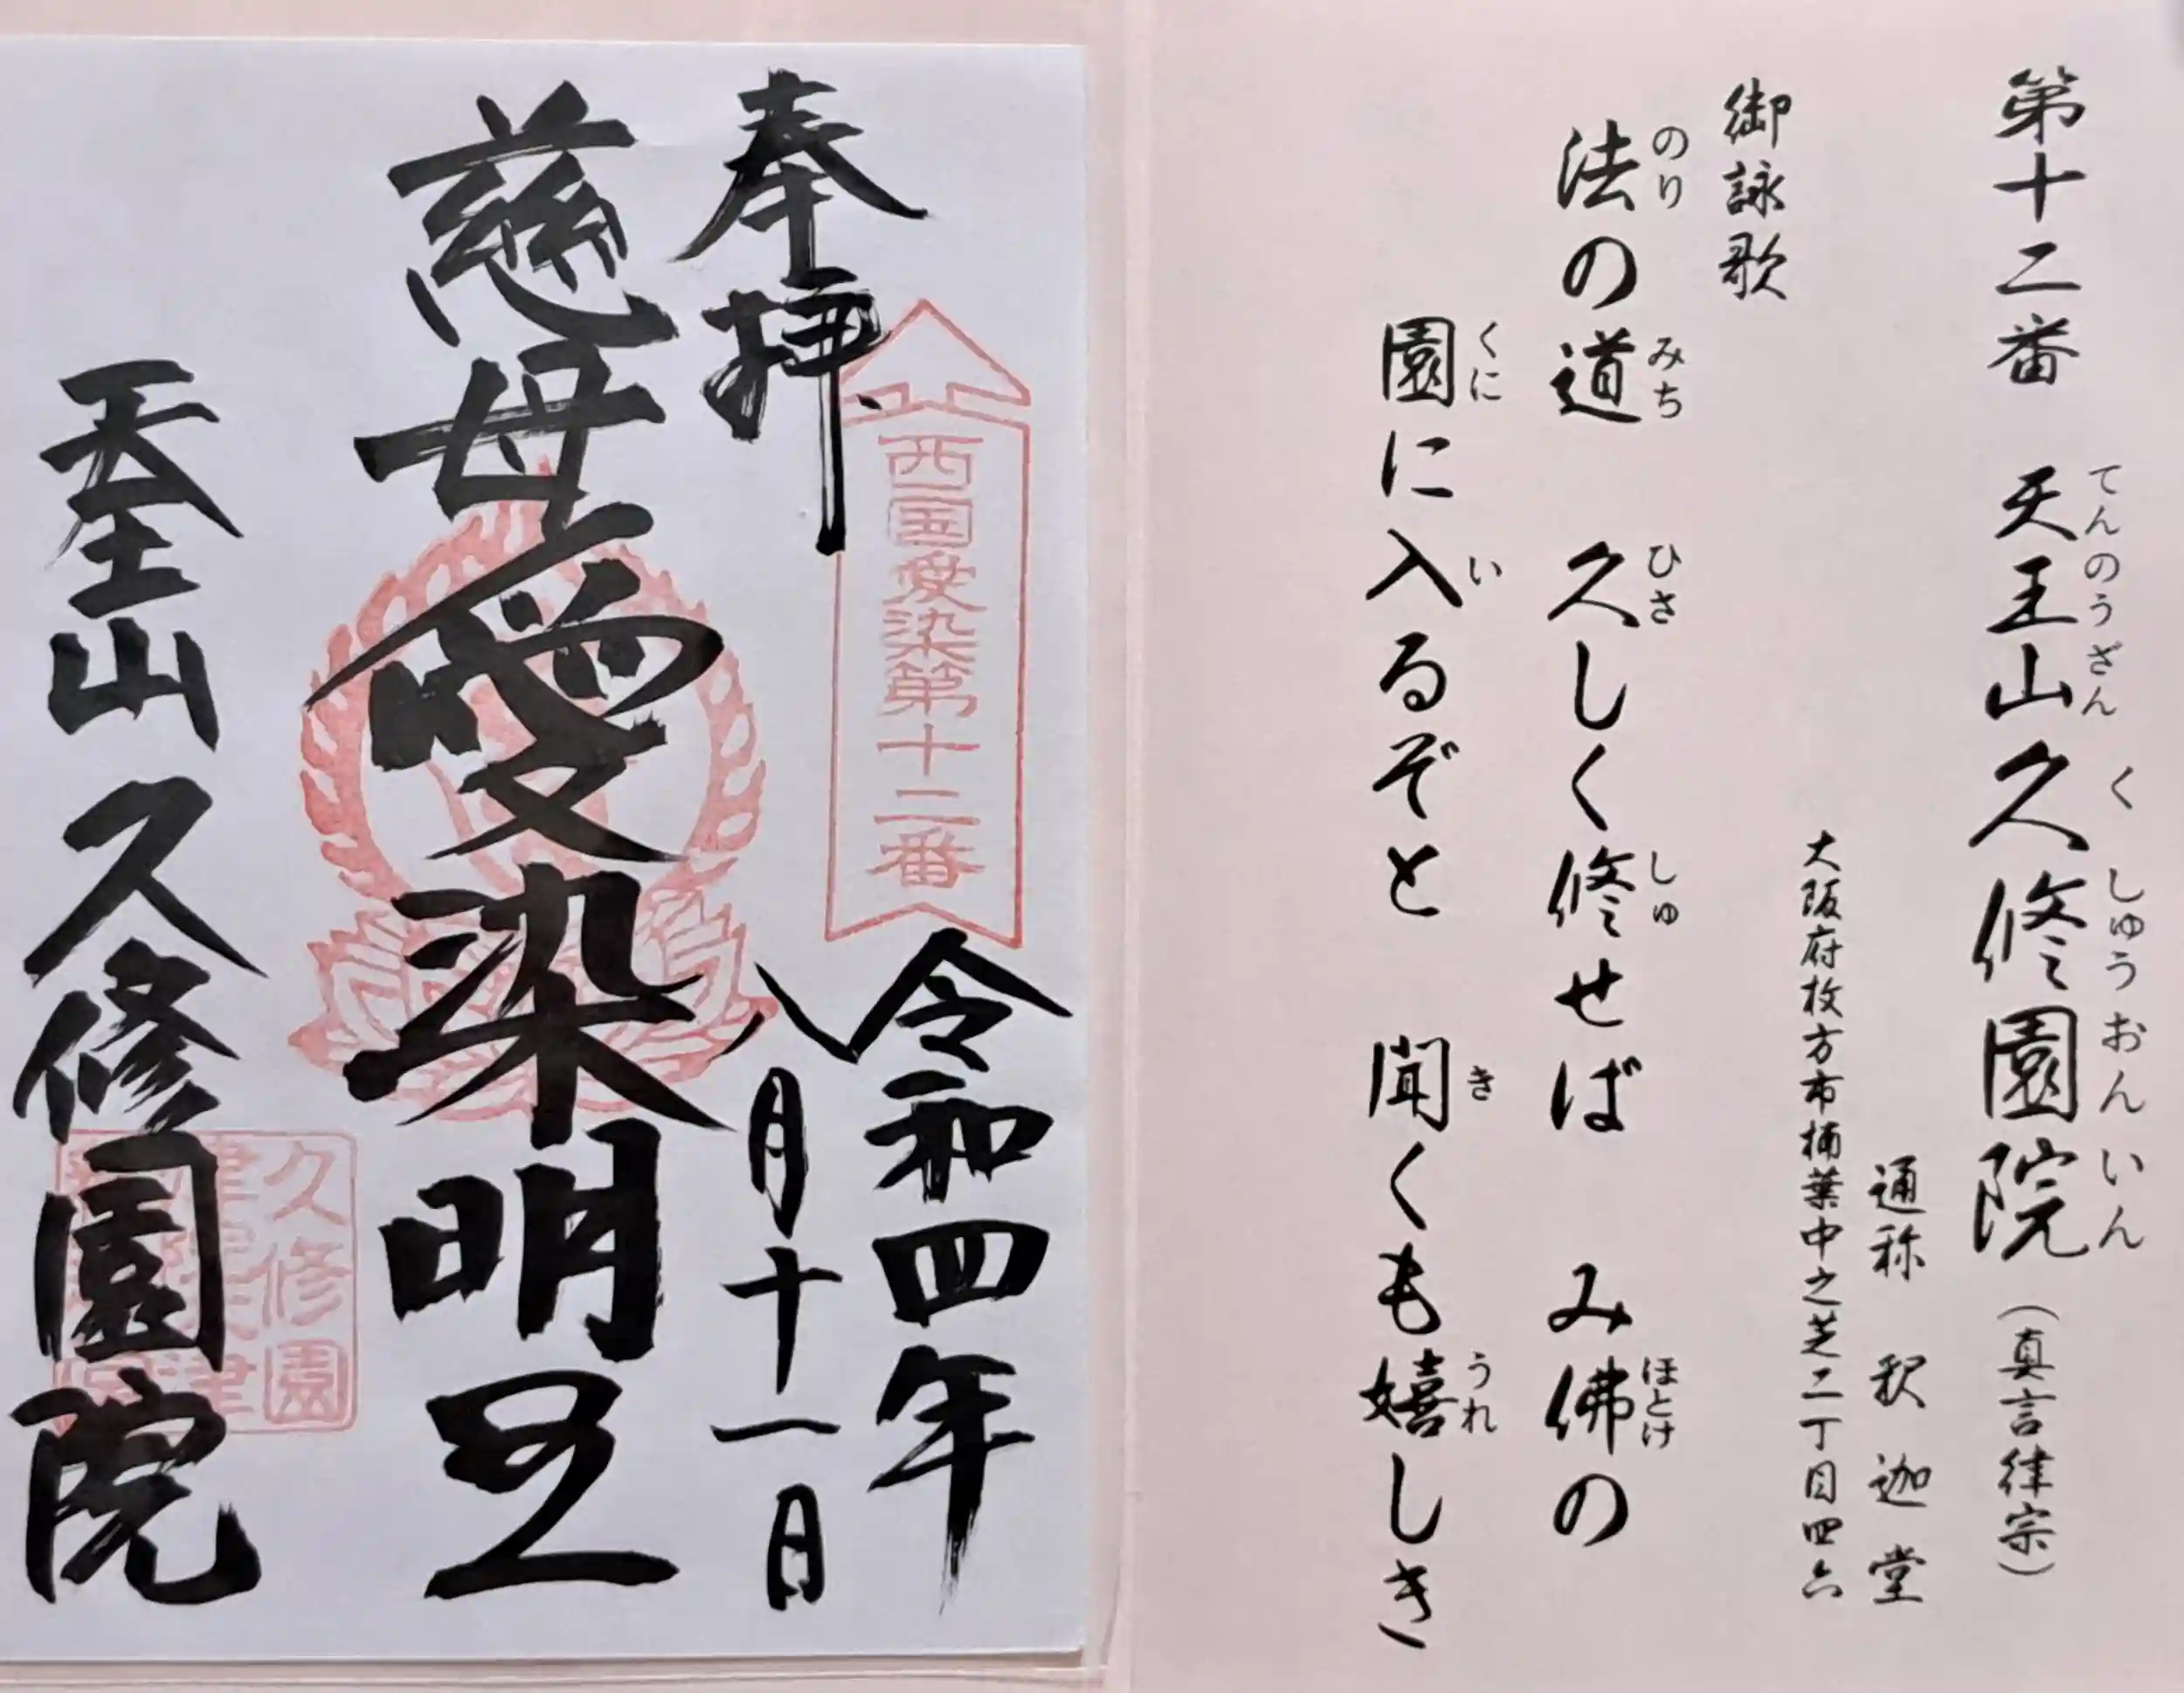 第十二番 天王山久修園院（真言律宗）
てんのうざん くしゅうおんいん
通称 釈迦堂
大阪府枚方市楠葉中之芝二丁目四六
御詠歌
法の道 久しく修せば み佛の
のり みち ひさ しゅ ほとけ
園に入るぞと 聞くも嬉しき
くに い き うれ
奉拝
西国愛染第十二番
令和四年
八月十一日
慈母愛染明王
天王山 久修園院
久修園